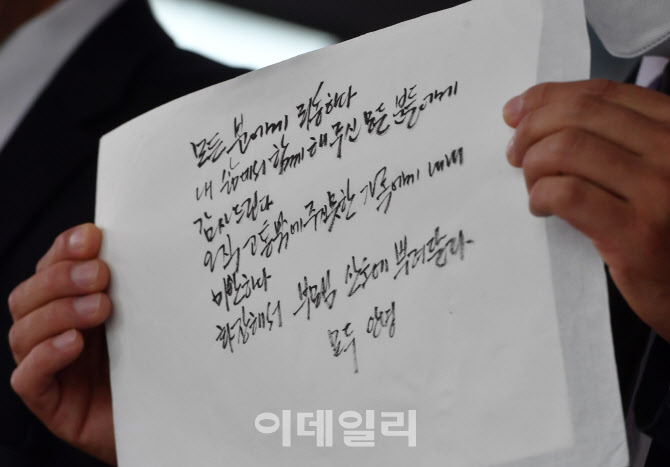 모든 분에게 죄송하다
내 삶에서 함께 해 주신 모든 분들에게
감사드린다
오직 고통밖에 주지 못한 가족에게 내내
미안하다
화장해서 부모님 산소에 뿌려달라
모두 안녕
이데일리